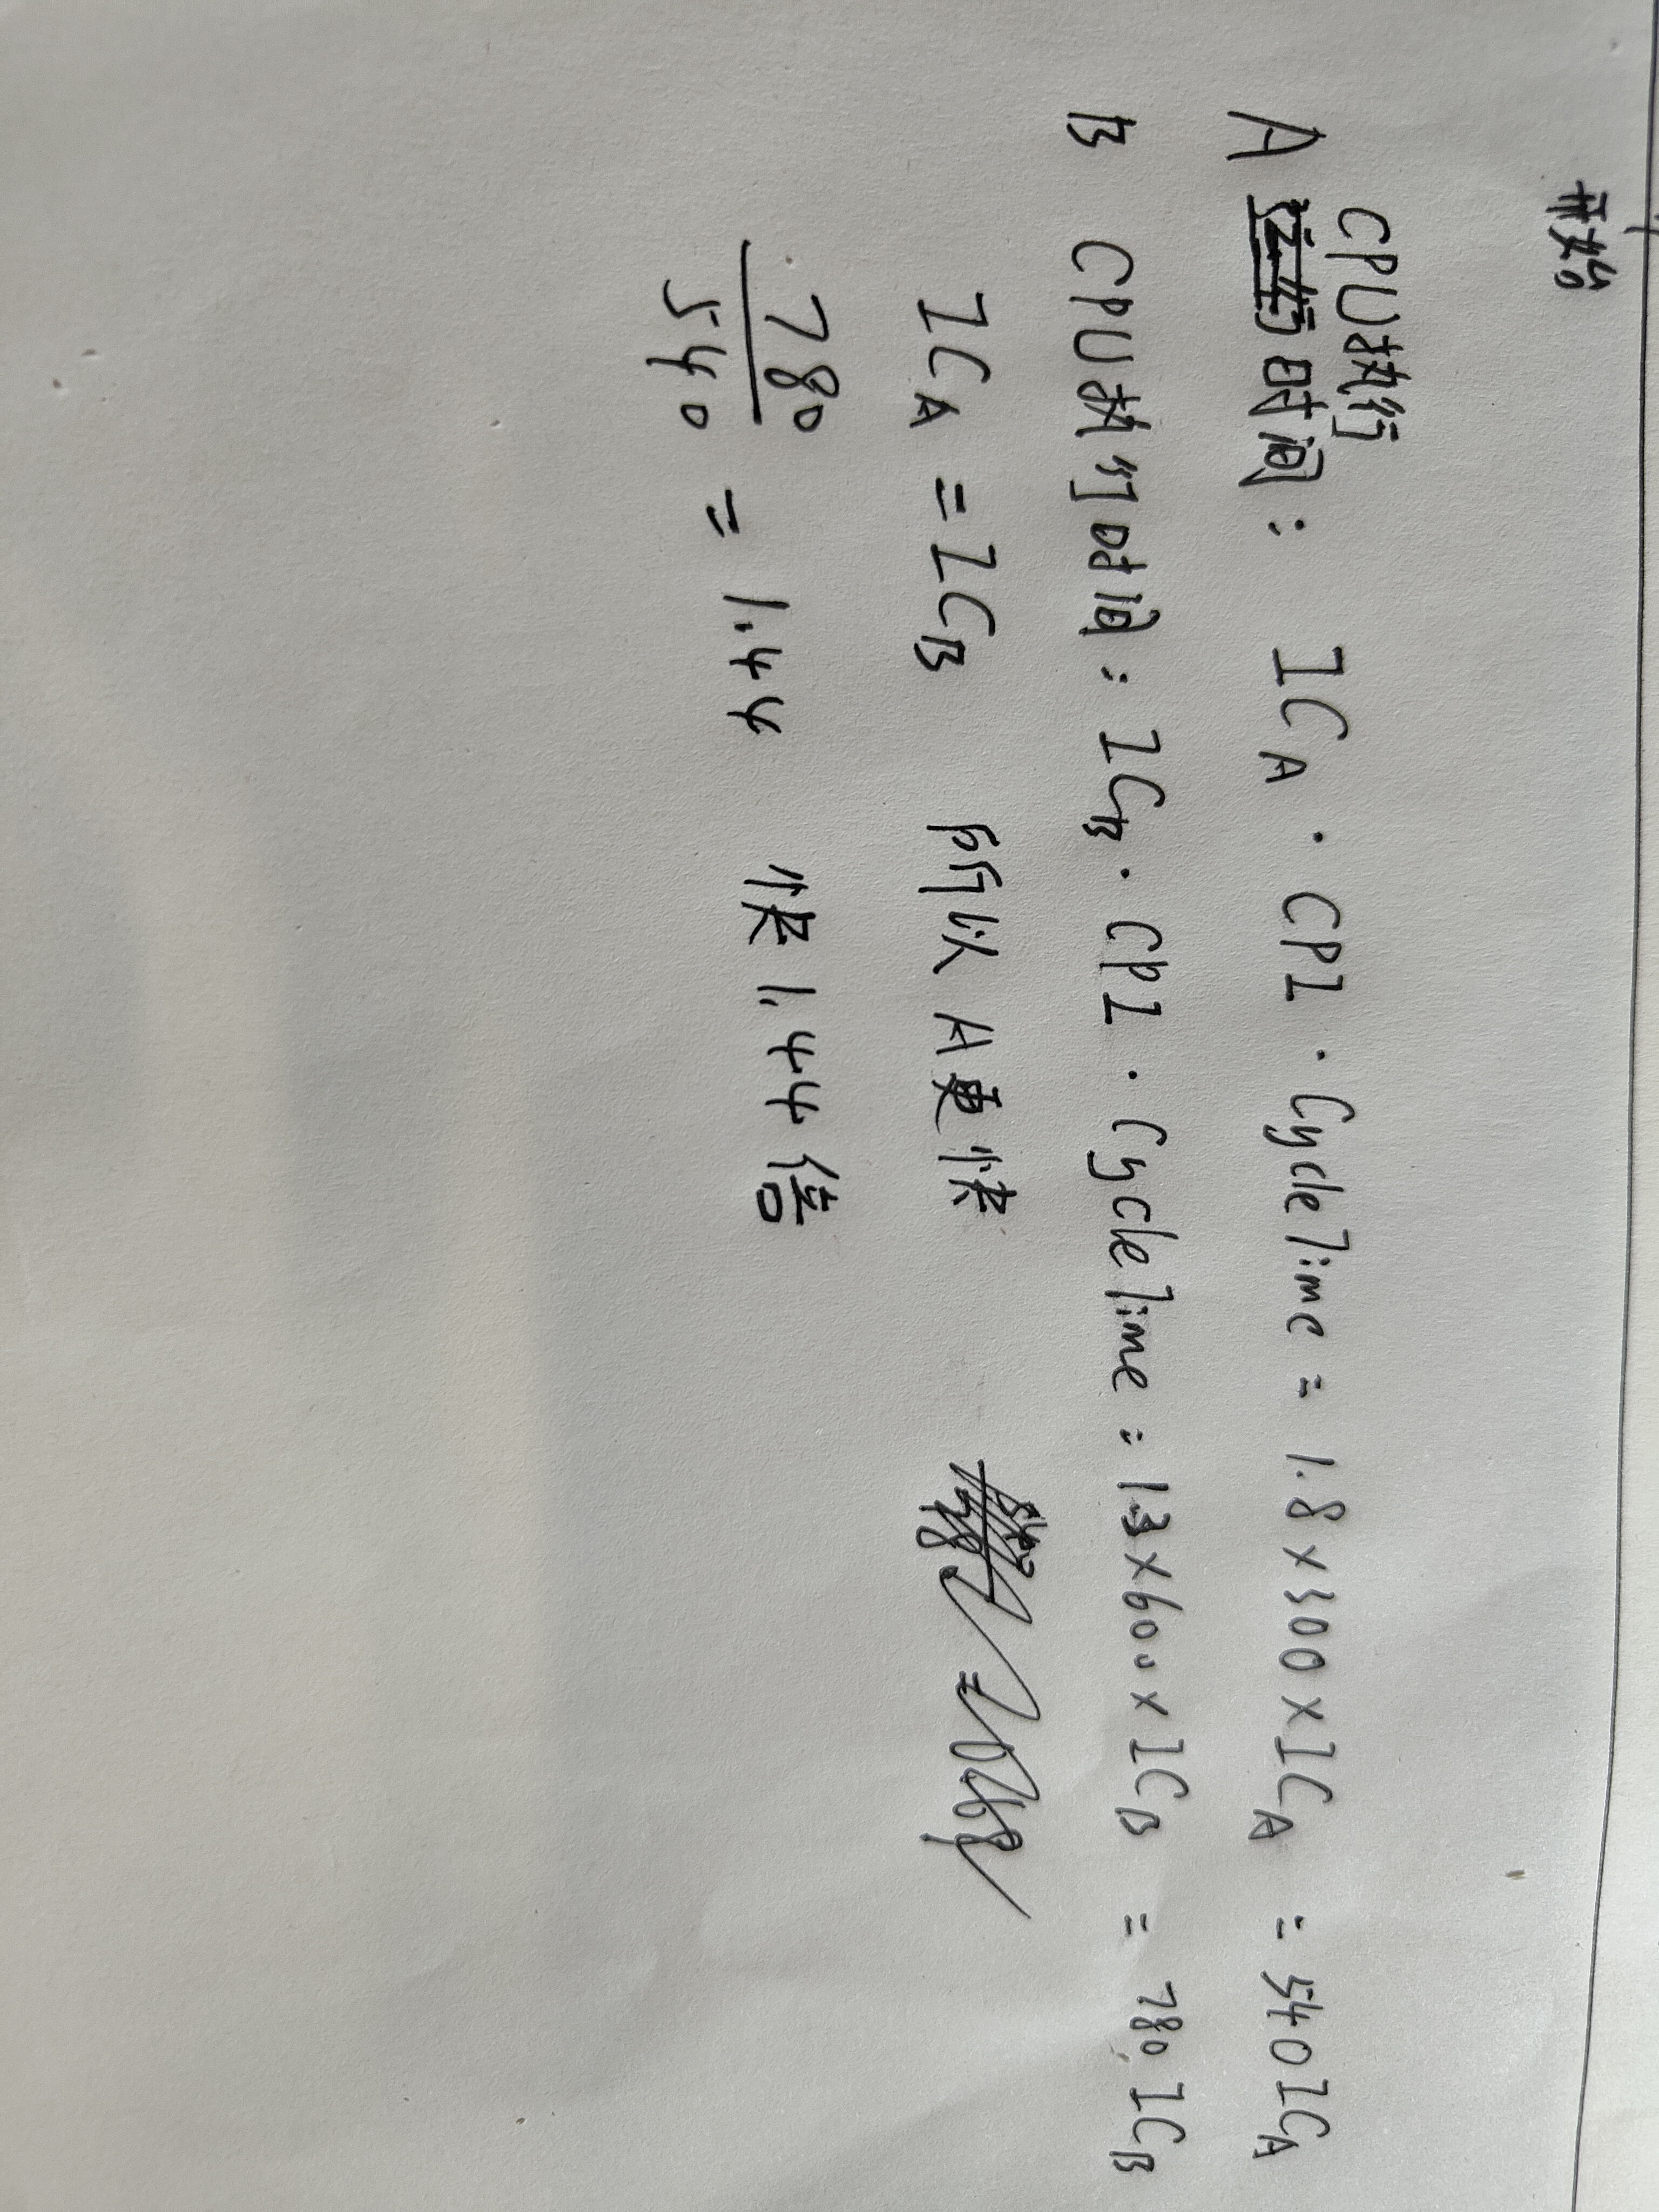 开始
CPU执行
A 运行时间: IC_A · CPI · CycleTime = 1.8×300×IC_A = 540IC_A
B CPU执行时间: IC_B · CPI · CycleTime = 1.3×600×IC_B = 780 IC_B
IC_A = IC_B 所以A更快
780
540 = 1.44 快1.44倍